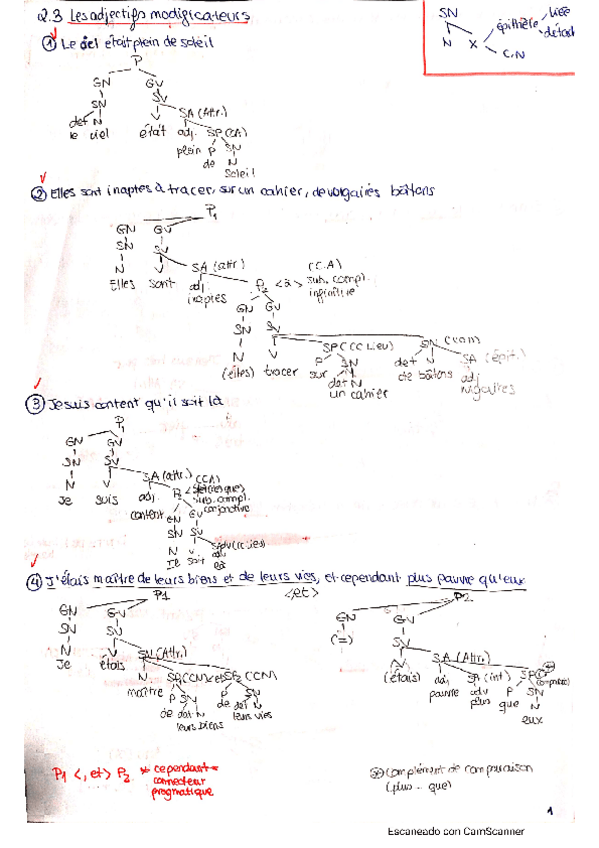 2.3 Les adjectifs modificateurs
SN
N X épithète liée
détach
C.N
① Le ciel était plein de soleil
P
GN GV
SN SV
det N V SA (Attr.)
le ciel était adj. SP (CA)
plein P SN
de N
soleil
② Elles sont inaptes à tracer, sur un cahier, de vulgaires bâtons
P1
GN GV
SN SV
N V SA (attr) (C.A)
Elles sont adj P2 <à> sub. compl.
inaptes infinitive
GN GV
SN SV
SP (CC Lieu) SN
N V P SN det SA (épit.)
(elles) tracer sur det N de bâtons adj
un cahier vulgaires
③ Je suis content qu'il soit là
P1
GN GV
SN SV
N V SA (attr.) (CA)
Je suis adj. P2
content conjonctive
GN GV
SN SV
N V
Il soit adv
là
④ J'étais maître de leurs biens et de leurs vies, et cependant plus pauvre qu'eux
P1 <et> P2
GN GV GN GV
SN SV (=) SV
N V SN (Attr.) (étais) SA (Attr.)
Je étais N SP (CN) et SP2 (CN) adj SA (int) SP
maître P SN P SN pauvre adv P SN
de det N de det N plus que N
leurs biens leurs vies eux
P1 <, et> P2 * cependant =
connecteur
pragmatique
Complément de comparaison
(plus .. que)
1
Escaneado con CamScanner